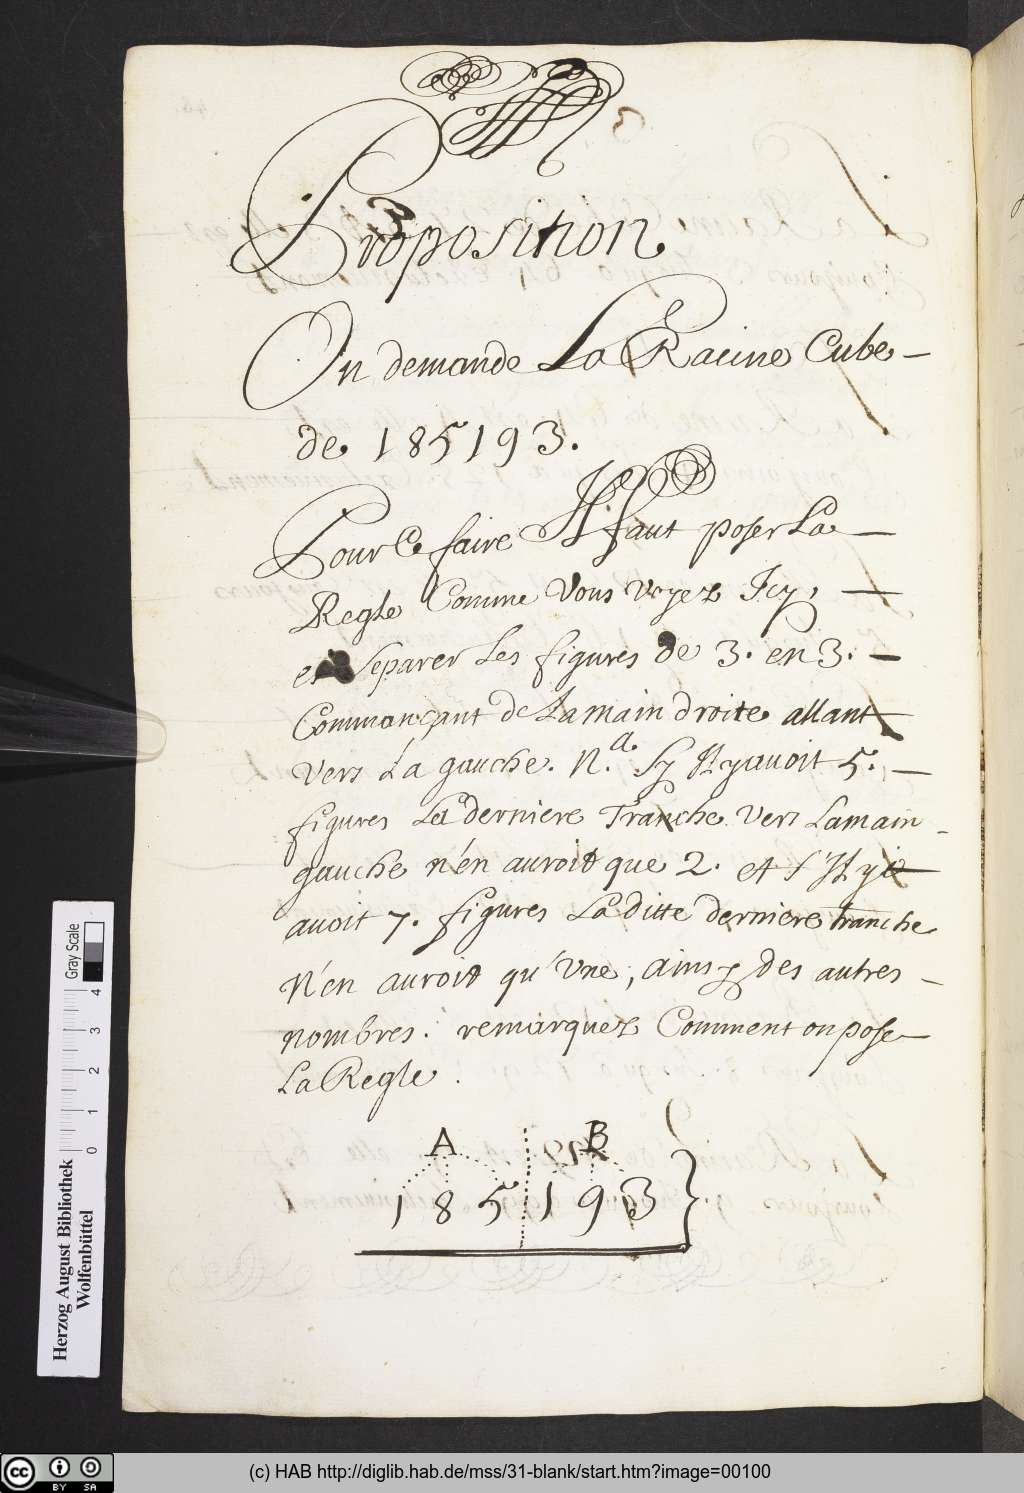 Proposition
On demande La Racine Cube
de 185193.
Pour Ce faire Il faut poser La
Regle Comme Vous Voyez Icy,
et Separer Les figures de 3. en 3.
Commançant de La main droite allant
vers La gauche. N.a Sy Il y avoit 5.
figures La derniere Tranche Vers La main
gauche n'en auroit que 2. et s'Il y
avoit 7. figures La ditte derniere tranche
N'en auroit qu'Une, ainsy des autres
nombres. remarquez Comment on pose
La Regle.
A B
185 193
Gray Scale
0 1 2 3 4
Herzog August Bibliothek
Wolfenbüttel
cc BY SA
(c) HAB http://diglib.hab.de/mss/31-blank/start.htm?image=00100